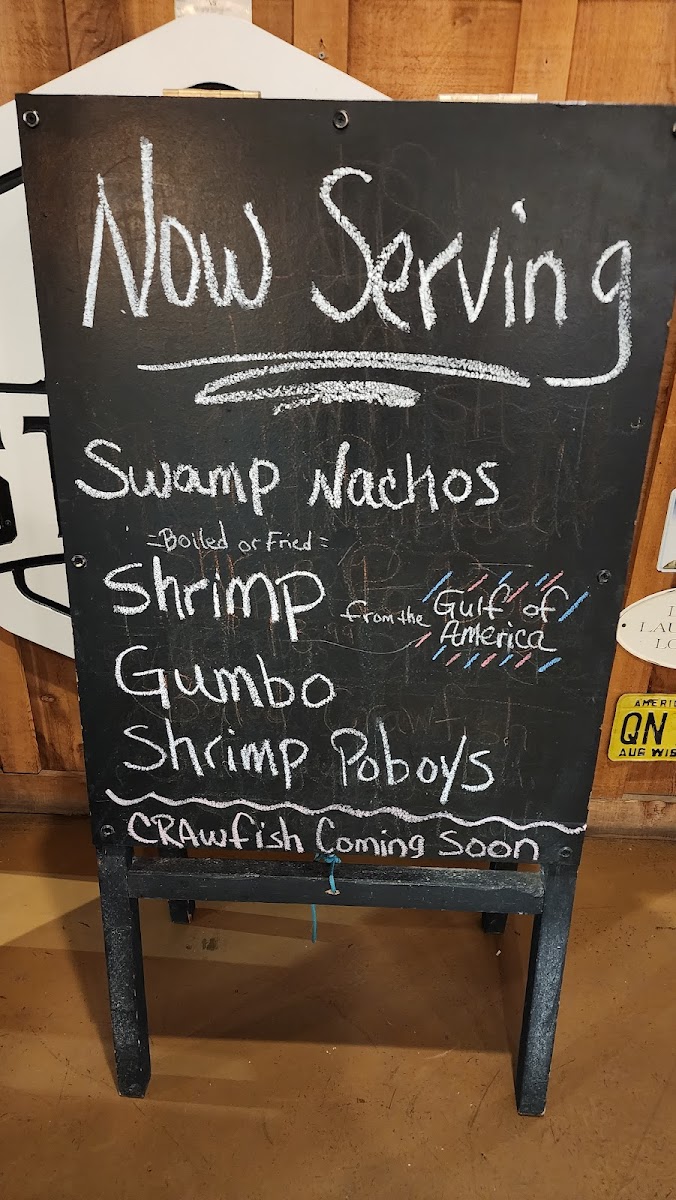 Now Serving
Swamp Nachos
=Boiled or Fried=
Shrimp from the Gulf of
America
Gumbo
Shrimp Poboys
CRAwfish Coming Soon
LAU
LO
AMERIC
QN
AUR WIS